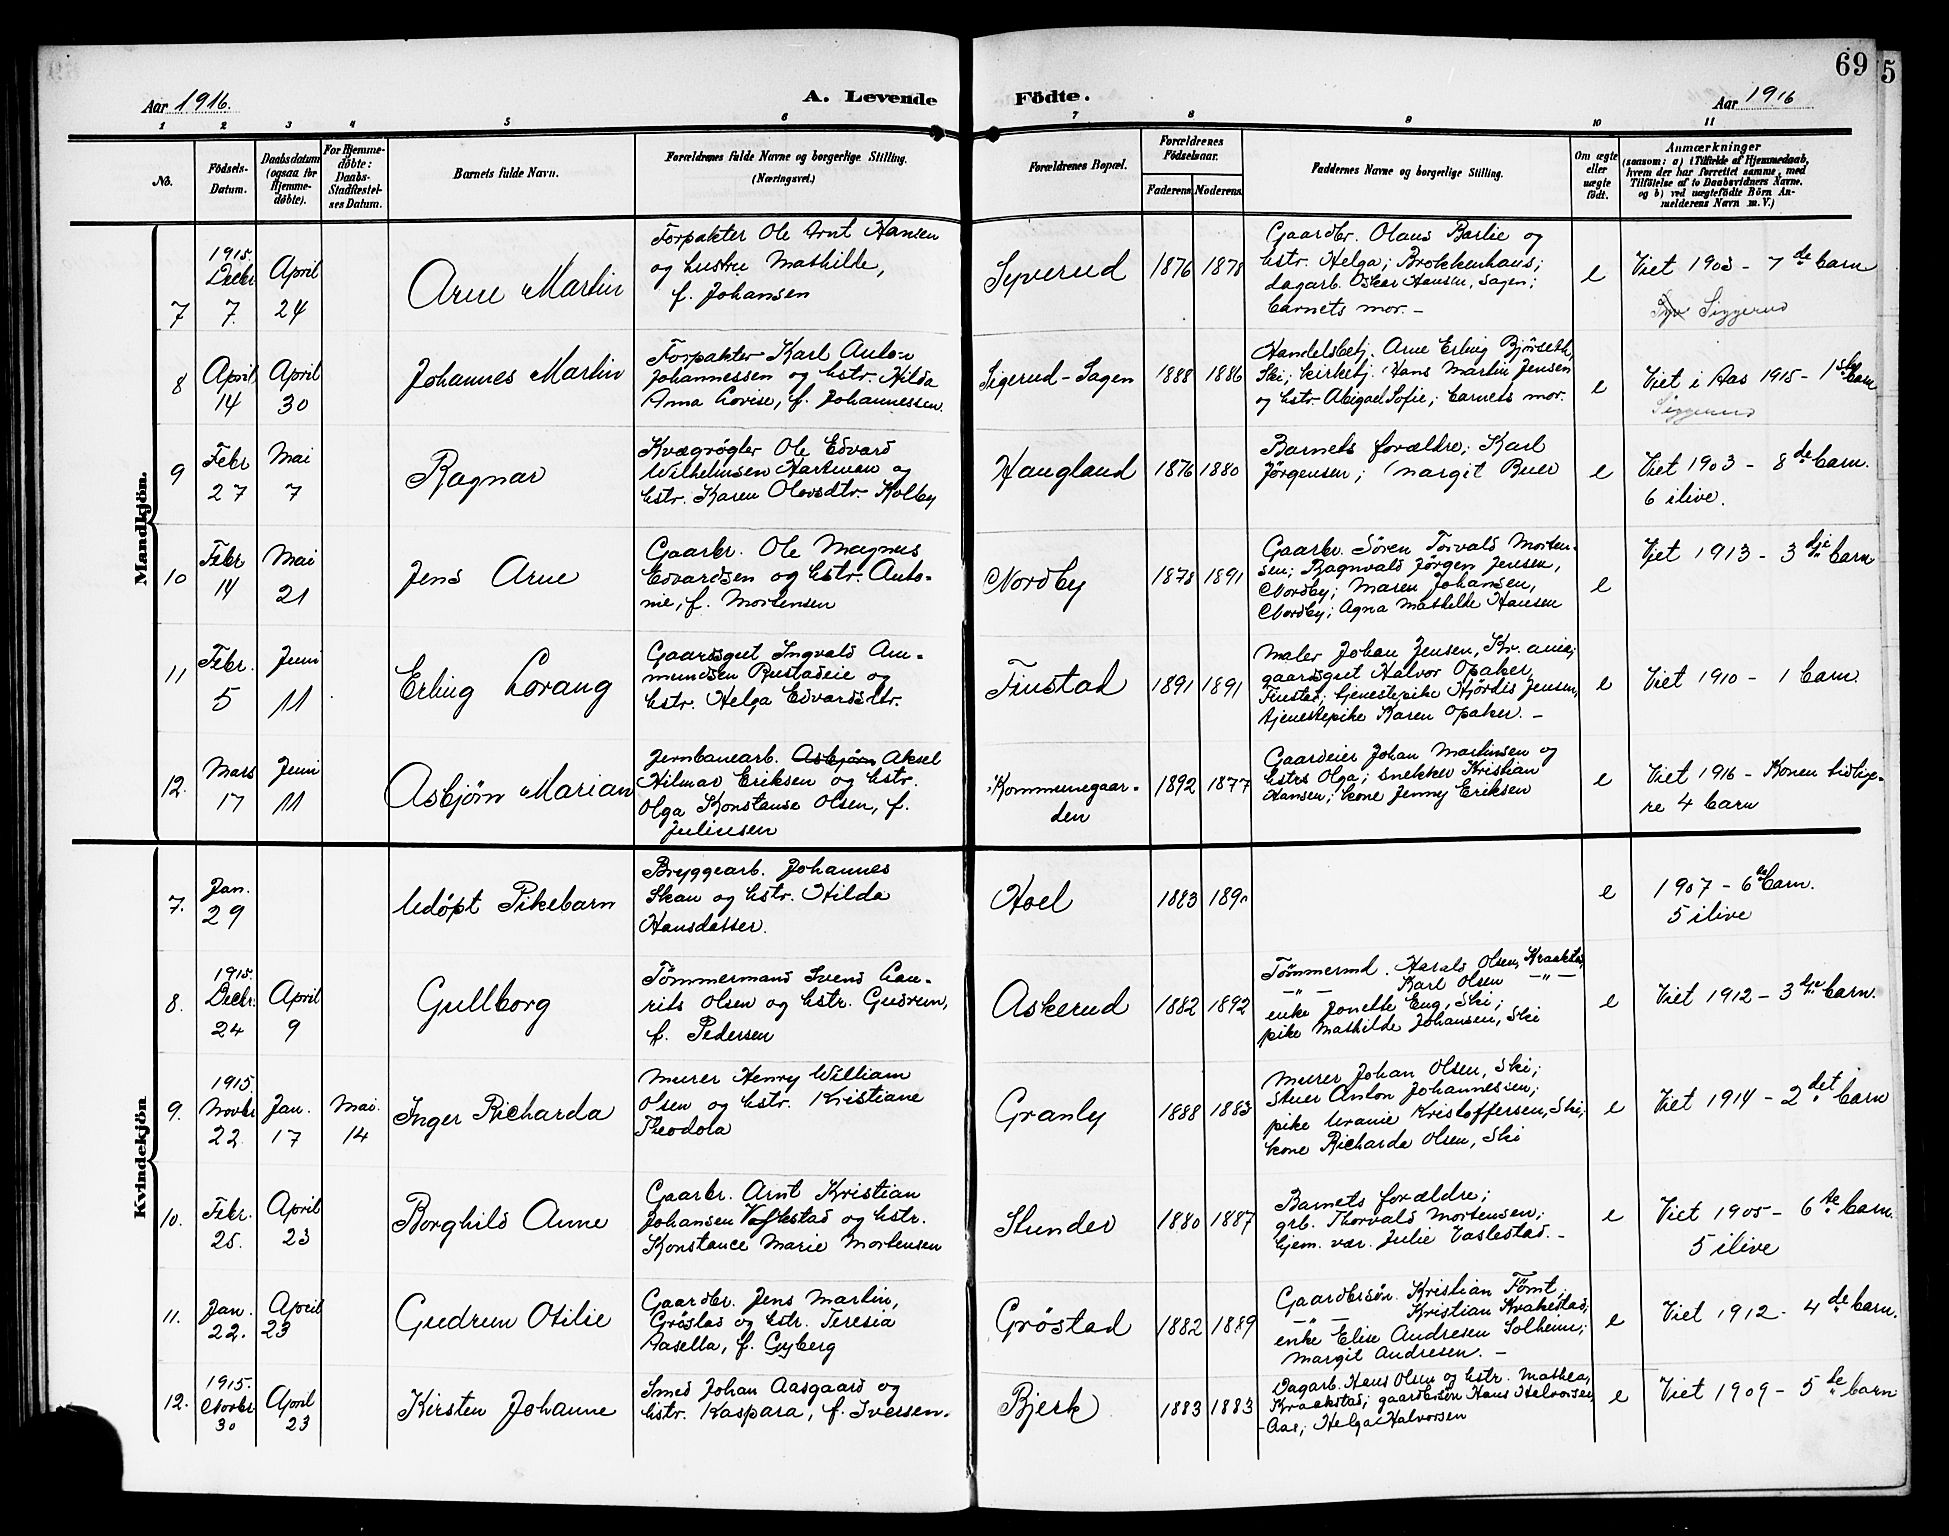 69
5
Aar 1916.
A. Levende Födte.
Aar 1916
1 2 3 4 5 6 7 8 9 10 11
No.
Födsels-
Datum.
Daabsdatum
(ogsaa for
Hjemme-
döbte).
For Hjemme-
döbte:
Daabs-
Stadfæstel-
ses Datum.
Barnets fulde Navn.
Forældrenes fulde Navne og borgerlige Stilling.
(Næringsvei.)
Forældrenes Bopæl.
Forældrenes
Födselsaar.
Faderens. Moderens.
Faddernes Navne og borgerlige Stilling.
Om ægte
eller
uægte
födt.
Anmærkninger
(saasom: a) i Tilfælde af Hjemmedaab,
hvem der har forrettet samme, med
Tilföielse af to Daabsvidners Navne.
og b) ved uægtefödte Börn An-
melderens Navn m. V.)
Mandkjön.
7
1915.
Decbr
7.
April
24
Arne Martin
Forpakter Ole Arnt Hansen
og hustru Mathilde,
f. Johansen
Syverud
1876 1878
Gaardbr. Olaus Barlie og
hstr. Helga; Brokkenhaus;
dagarb. Oskar Hansen, Sagen;
barnets mor. -
e
Viet 1903 - 7de barn
Siggerud
8
April
14
April
30
Johannes Martin
Forpakter Karl Anton
Johannessen og hstr. Hilda
Anna Lovise, f. Johannessen.
Sigerud-Sagen
1888 1886
Handelsbetj. Arne Erling Bjørseth,
Ski; kirketj. Hans Martin Jensen
og hstr. Abigael Sofie; barnets mor.
e
Viet i Aas 1915 - 1ste barn
Siggerud
9
Febr
27
Mai
7
Ragnar
Kvægrøgter Ole Edvard
Wilhelmsen Hartman og
hstr. Karen Olavsdtr. Kolby
Haugland
1876 1880
Barnets forældre; Karl
Jørgensen; Margit Buer
e
Viet 1903 - 8de barn.
6 ilive.
10
Febr
14
Mai
21
Jens Arne
Gaarbr. Ole Magnus
Edvardsen og hstr. Anto-
nie, f. Mortensen
Nordby
1878 1891
Gaarbr. Sören Torvald Morten-
sen; Ragnvald Jørgen Jensen,
Nordby; Maren Johansen,
Nordby; Agna Mathilde Hansen
e
Viet 1913 - 3dje barn
11
Febr.
5
Juni
11
Erling Lorang
Gaardsgut Ingvald Am-
mundsen Rustadeie og
hstr. Helga Edvardsdtr.
Finstad
1891 1891
Maler Johan Jensen, Kr.ania;
gaardsgut Halvor Opaker,
Finstad; tjenestepike Hjördis Jensen,
tjenestepike Karen Opaker. -
e
Viet 1910 - 1 barn.
12.
Mars
17
Juni
11
Asbjørn Marian
Jernbanearb. Asbjørn Aksel
Hilmar Eriksen og hstr.
Olga Konstanse Olsen, f.
Juliusen
Kommunegaar-
den
1892 1877
Gaardeier Johan Martinsen og
hstrs Olga; snekker Kristian
Hansen; kone Jenny Eriksen
e
Viet 1916 - Konen tidlige-
re 4 barn
Kvindekjön
7.
Jan.
29
Udöpt Pikebarn
Bryggearb. Johannes
Skau og hstr. Hilda
Hansdatter.
Hoel
1883 189
e
1907 - 6te barn.
5 ilive
8.
1915.
Decbr.
24
April
9
Gullborg
Tömmermand Svend Lau-
rits Olsen og hstr. Gudrun,
f. Pedersen
Askerud
1882 1892
Tömmermd. Harald Olsen, Kraakstad,
-"- Karl Olsen -"-
enke Jonette Eng, Ski;
pike Mathilde Johansen, Ski
e
Viet 1912 - 3dje barn.
9.
1915.
Novbr
22
Jan.
17
Mai.
14
Inger Richarda
Murer Henry William
Olsen og hstr. Kristiane
Theodola
Granly
1888 1883
Murer Johan Olsen, Ski;
Stuer Anton Johannessen;
pike Uranie Kristoffersen, Ski;
kone Richarda Olsen, Ski
e
Viet 1914 - 2det barn
10.
Febr.
25.
April
23
Borghild Anne
Gaarbr. Arnt Kristian
Johansen Vestad og hstr.
Konstance Marie Mortensen
Stunder
1880 1887
Barnets forældre;
grb. Thorvald Mortensen;
hjem. vær. Julie Vaslestad. -
e
Viet 1905 - 6te barn.
5 ilive
11.
Jan.
22.
April
23
Gudrun Otilie
Gaardbr. Jens Martin,
Gröstad og hstr. Teresia
Aasella, f. Gyberg
Gröstad
1882 1889
Gaardbrsön. Kristian Tömt,
-"- Kristian Krakestad,
enke Elise Andresen Solheim;
Margit Andresen. -
e
Viet 1912 - 4de barn.
12.
1915.
Novbr
30
April
23
Kirsten Johanne
Smed Johan Aasgaard og
hstr. Kaspara, f. Iversen.
Bjerk
1883 1883
Dagarb. Hans Olsen og hstr. Mathea,
Kraakstad; gaardbrsön Hans Halvorsen,
Aas; Helga Halvorsen
e
Viet 1909 - 5te barn